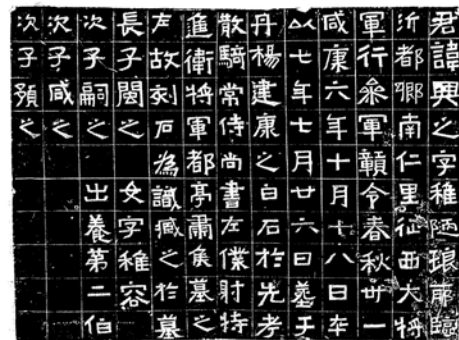 君諱興之字稚陋琅耶臨
沂都鄉南仁里征西大將
軍行參軍贑令春秋卅一
咸康六年十月十八日卒
以七年七月廿六日葬于
丹楊建康之白石於先考
散騎常侍尚書左僕射特
進衛將軍都亭肅侯墓之
左故刻石為識臧之於墓
長子閩之 女字稚容
次子嗣之 出養第二伯
次子咸之
次子預之